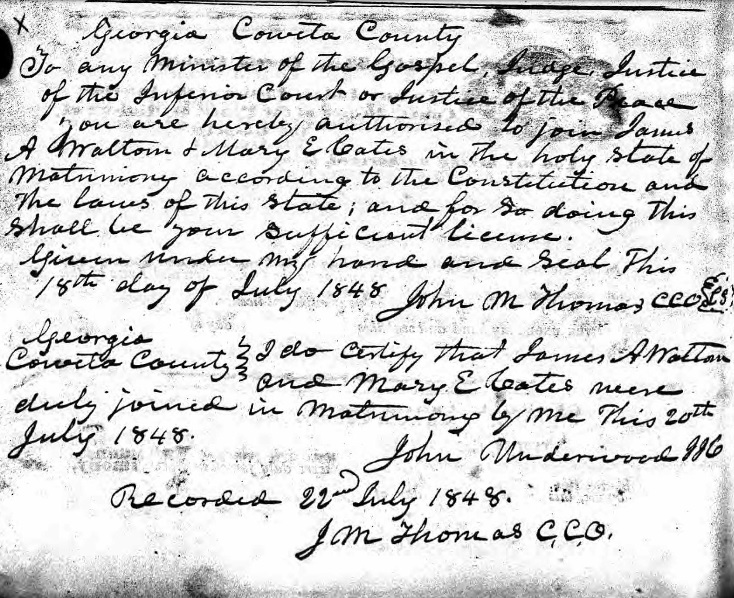 Georgia Coweta County
To any Minister of the Gospel, Judge, Justice
of the Inferior Court or Justice of the Peace
you are hereby authorised to join James
A Wattom & Mary E Cates in the holy state of
Matrimony according to the Constitution and
the laws of this state; and for so doing this
shall be your sufficient license.
Given under my hand and seal this
18th day of July 1848 John M Thomas CCO
Georgia
Coweta County I do certify that James A Wattom
and Mary E Cates were
duly joined in Matrimony by me this 20th
July 1848.
John Underwood
Recorded 22nd July 1848.
J M Thomas C,C,O.